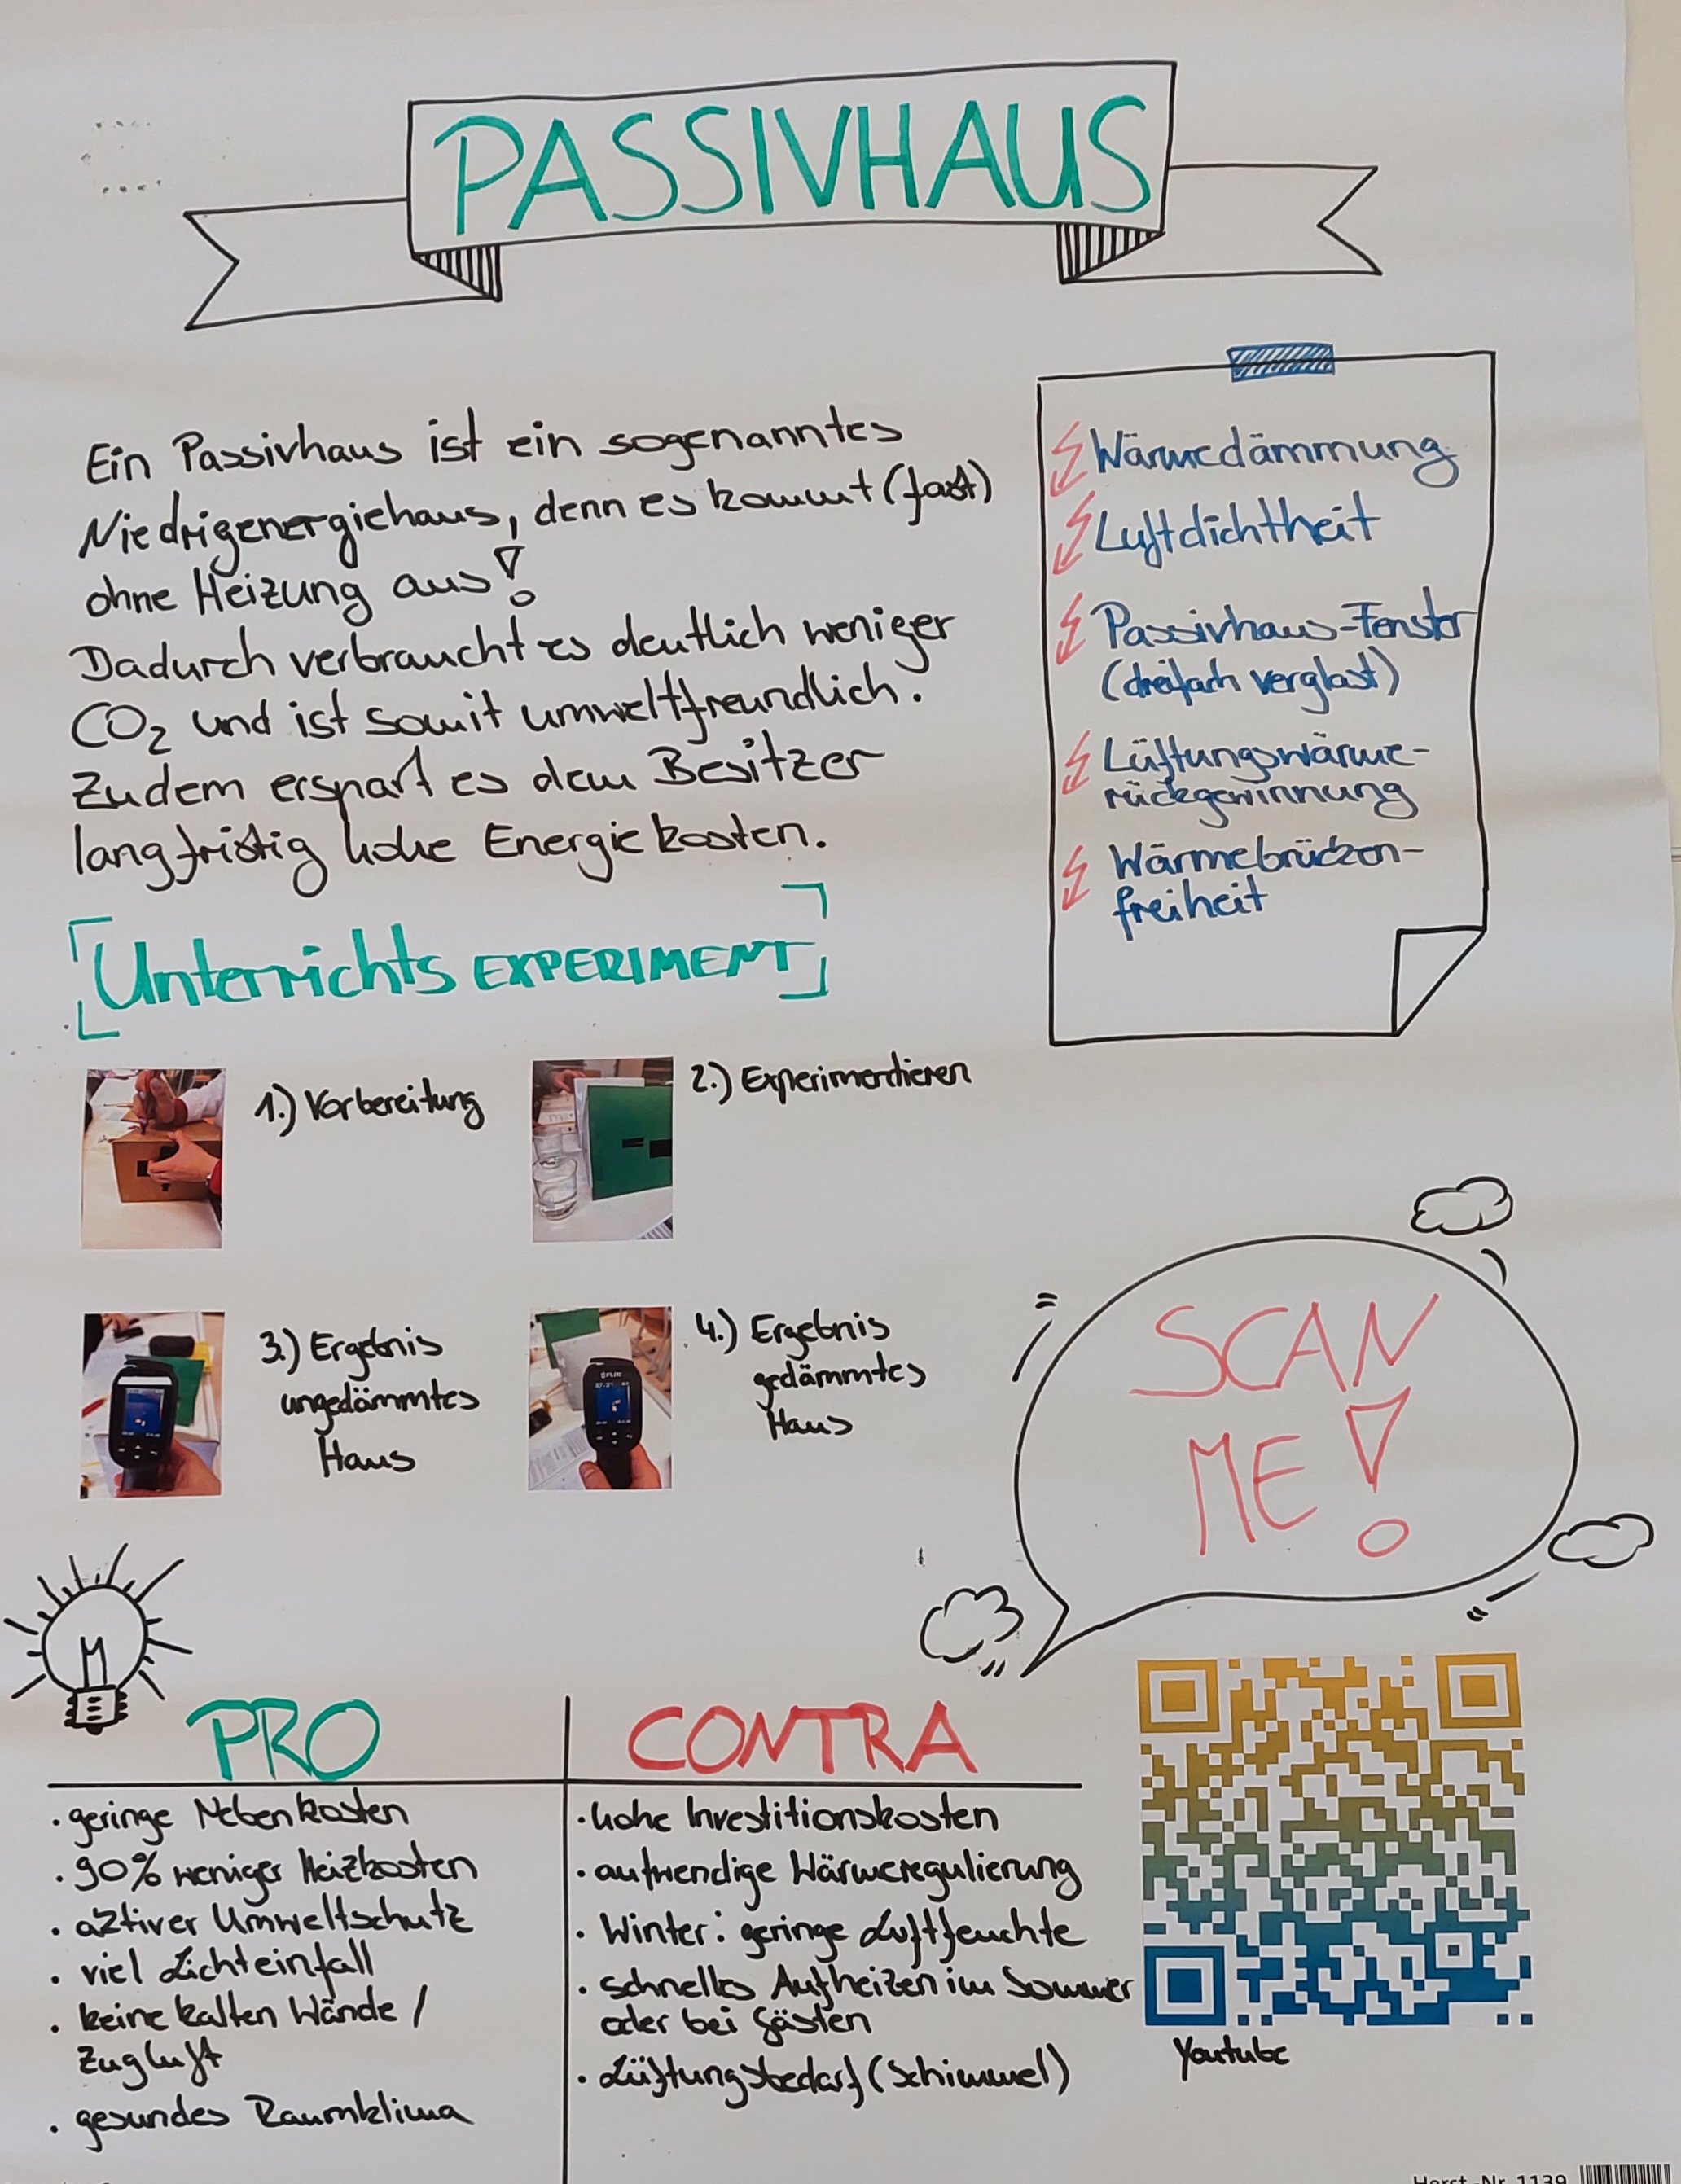 PASSIVHAUS
Ein Passivhaus ist ein sogenanntes
Niedrigenergiehaus, denn es kommt (fast)
ohne Heizung aus!
Dadurch verbraucht es deutlich weniger
CO₂ und ist somit umweltfreundlich.
Zudem erspart es dem Besitzer
langfristig hohe Energiekosten.
Wärmedämmung
Luftdichtheit
Passivhaus-Fenster
(dreifach verglast)
Lüftungswärme-
rückgewinnung
Wärmebrücken-
freiheit
Unterrichts EXPERIMENT
1.) Vorbereitung
2.) Experimentieren
3.) Ergebnis
ungedämmtes
Haus
4.) Ergebnis
gedämmtes
Haus
SCAN
ME!
PRO
· geringe Nebenkosten
· 90% weniger Heizkosten
· aktiver Umweltschutz
· viel Lichteinfall
· keine kalten Wände /
Zugluft
· gesundes Raumklima
CONTRA
· hohe Investitionskosten
· aufwendige Wärmeregulierung
· Winter: geringe Luftfeuchte
· schnelles Aufheizen im Sommer
oder bei Gästen
· Lüftungsbedarf (Schimmel)
Youtube
Horst.-Nr. 1139